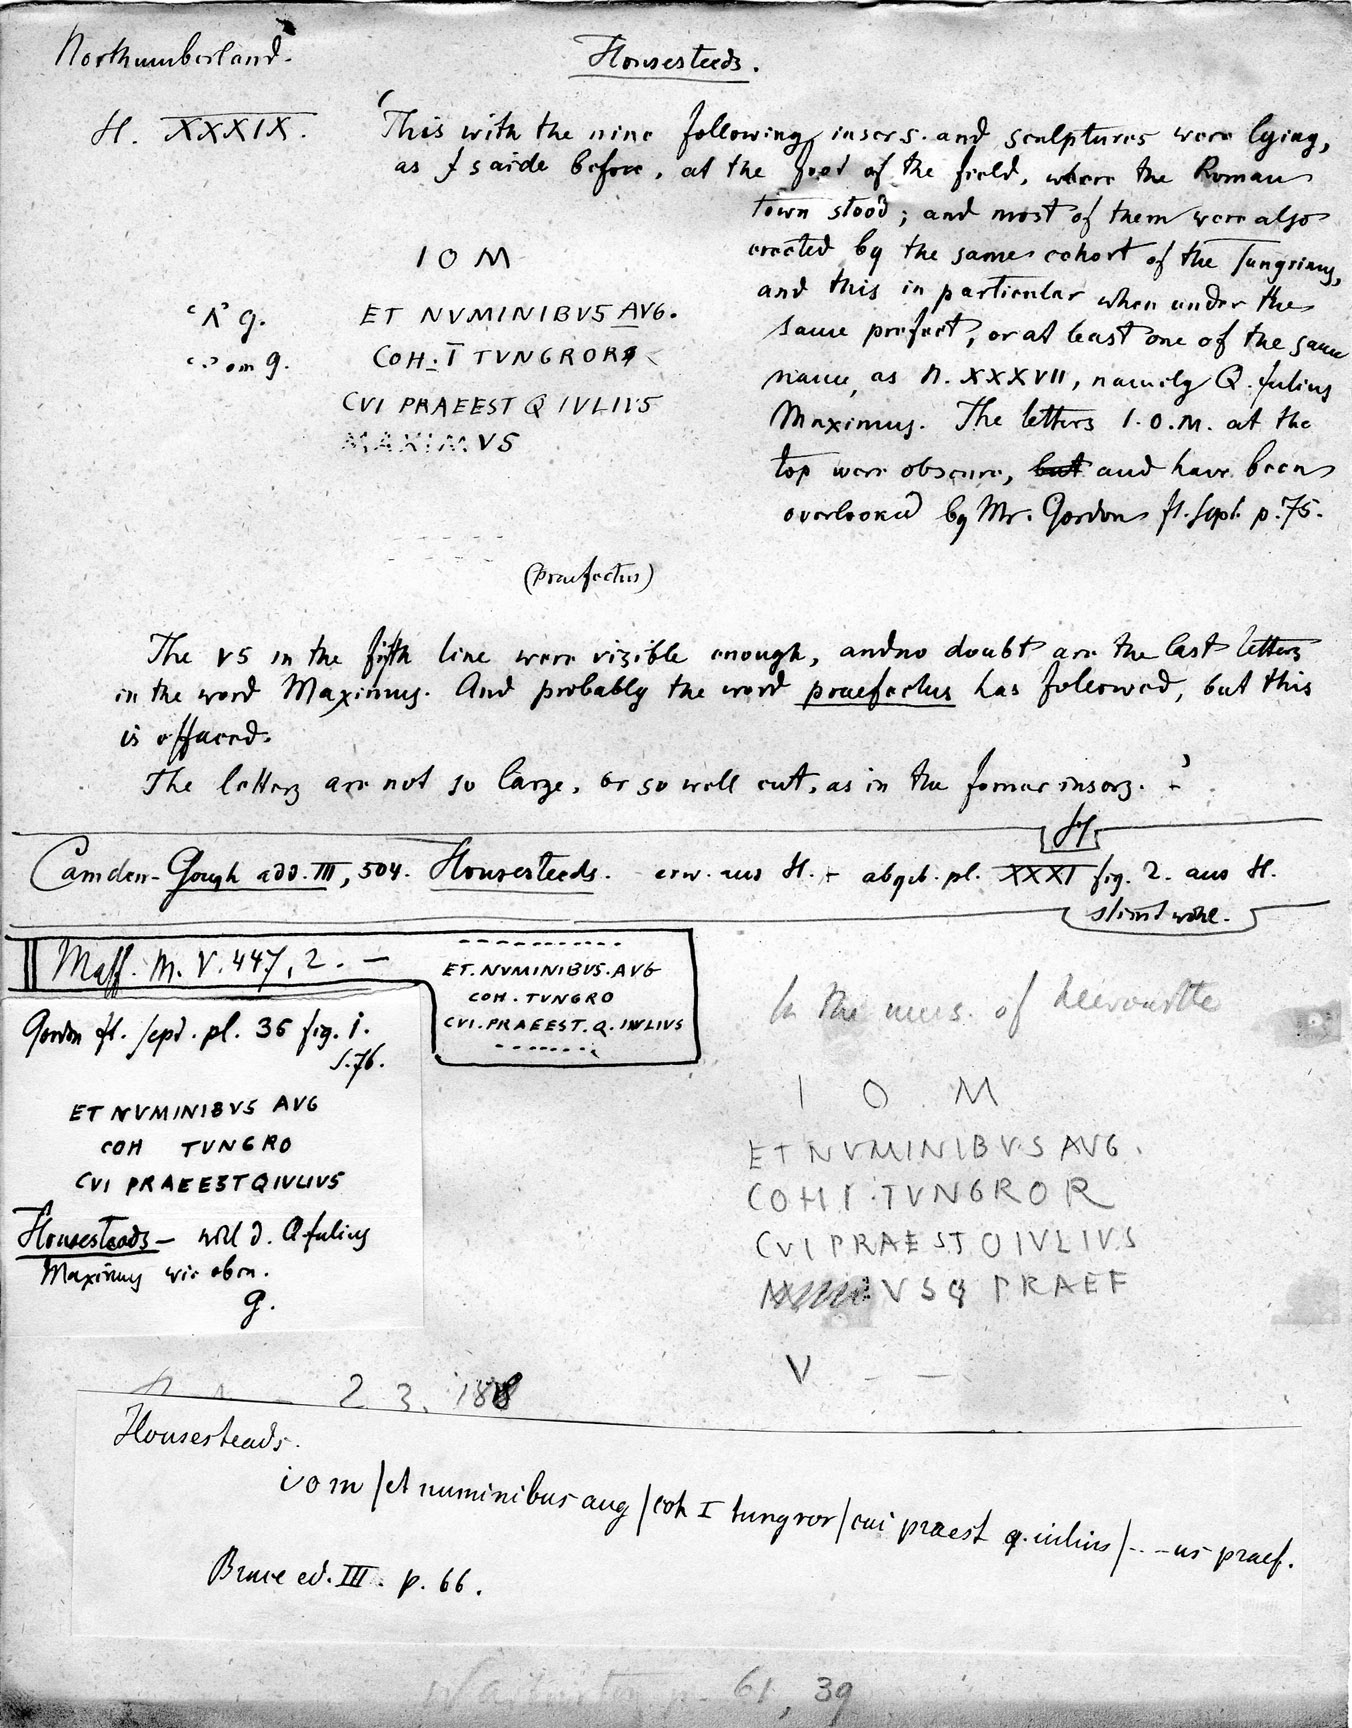 Northumberland.
Housesteeds.
H. XXXIX.
'This with the nine following inscrs. and sculptures were lying,
as I saide before, at the foot of the field, where the Roman
town stood; and most of them were also
erected by the same cohort of the Tungrians,
and this in particular when under the
same prefect, or at least one of the same
name, as n. XXXVII, namely Q. Julius
Maximus. The letters I.O.M. at the
top were obscure, but and have been
overlooked by Mr. Gordon It. sept. p. 75.
I O M
ET NVMINIBVS AVG.
COH. I TVNGROR
CVI PRAEEST Q IVLIVS
MAXIMVS
g.
om g.
(praefectus)
The VS in the fifth line were visible enough, and no doubt are the last letters
in the word Maximus. And probably the word praefectus has followed, but this
is effaced.
The letters are not so large, or so well cut, as in the former inscr. - '
H
Camden-Gough add. III, 504. Housesteeds. erw. aus H. + abgeb. pl. XXXI fig. 2. aus H.
stimt wohl.
Maff. M. V. 447, 2. —
ET. NVMINIBVS. AVG
COH. TVNGRO
CVI. PRAEEST. Q. IVLIVS
Gordon It. sept. pl. 36 fig. 1.
S. 76.
ET NVMINIBVS AVG
COH TVNGRO
CVI PRAEESTQIVLIVS
Housesteads — will d. Q Julius
Maximus wie oben.
g.
In the mus. of Newcastle
I O M
ET NVMINIBVS AVG.
COH I. TVNGROR
CVI PRAESTQIVLIVS
VS PRAEF
V - -
2 3. 188
Housesteads.
i o m / et numinibus aug / coh I tungror / cui praest q. iulius / - - -us praef.
Bruce ed. III. p. 66.
Warburton p. 61, 39